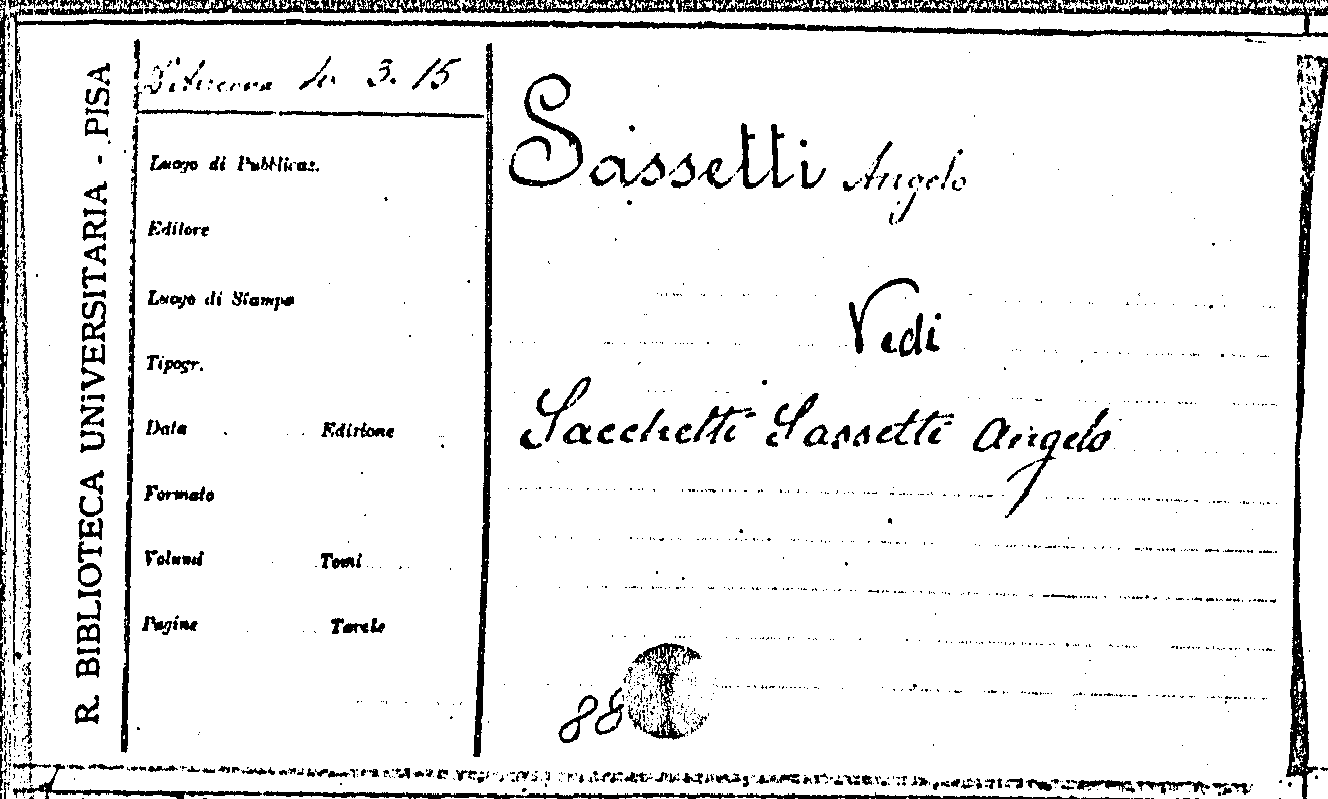 R. BIBLIOTECA UNIVERSITARIA - PISA
3. 15
Luogo di Pubblicaz.
Editore
Luogo di Stampa
Tipogr.
Data Edizione
Formato
Volumi Tomi
Pagine Tavole
Sassetti Angelo
Vedi
Sacchetti Sassetti Angelo
88